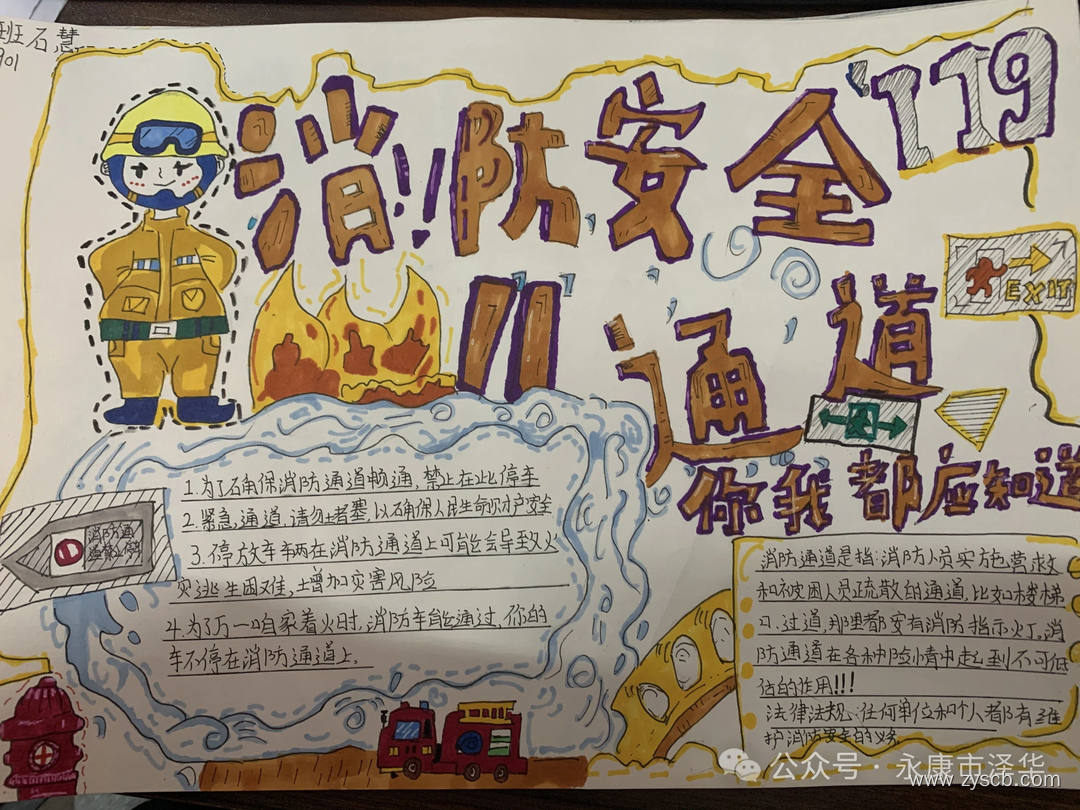 班石慧
901
消防安全
119
通道
EXIT
你我都应知道
1.为了确保消防通道畅通,禁止在此停车
2.紧急通道,请勿堵塞,以确保人民生命财产安全
3.停放车辆在消防通道上可能会导致火
灾逃生困难,增加灾害风险
4.为了万一咱家着火时,消防车能通过,你的
车不停在消防通道上.
消防通
道禁止停车
消防通道是指:消防人员实施营救
和被困人员疏散的通道,比如楼梯
口、过道,那里都安有消防指示灯,消
防通道在各种险情中起到不可低
估的作用!!!
法律法规:任何单位和个人都有维
护消防安全的义务.
公众号·永康市泽华
www.zyscb.com